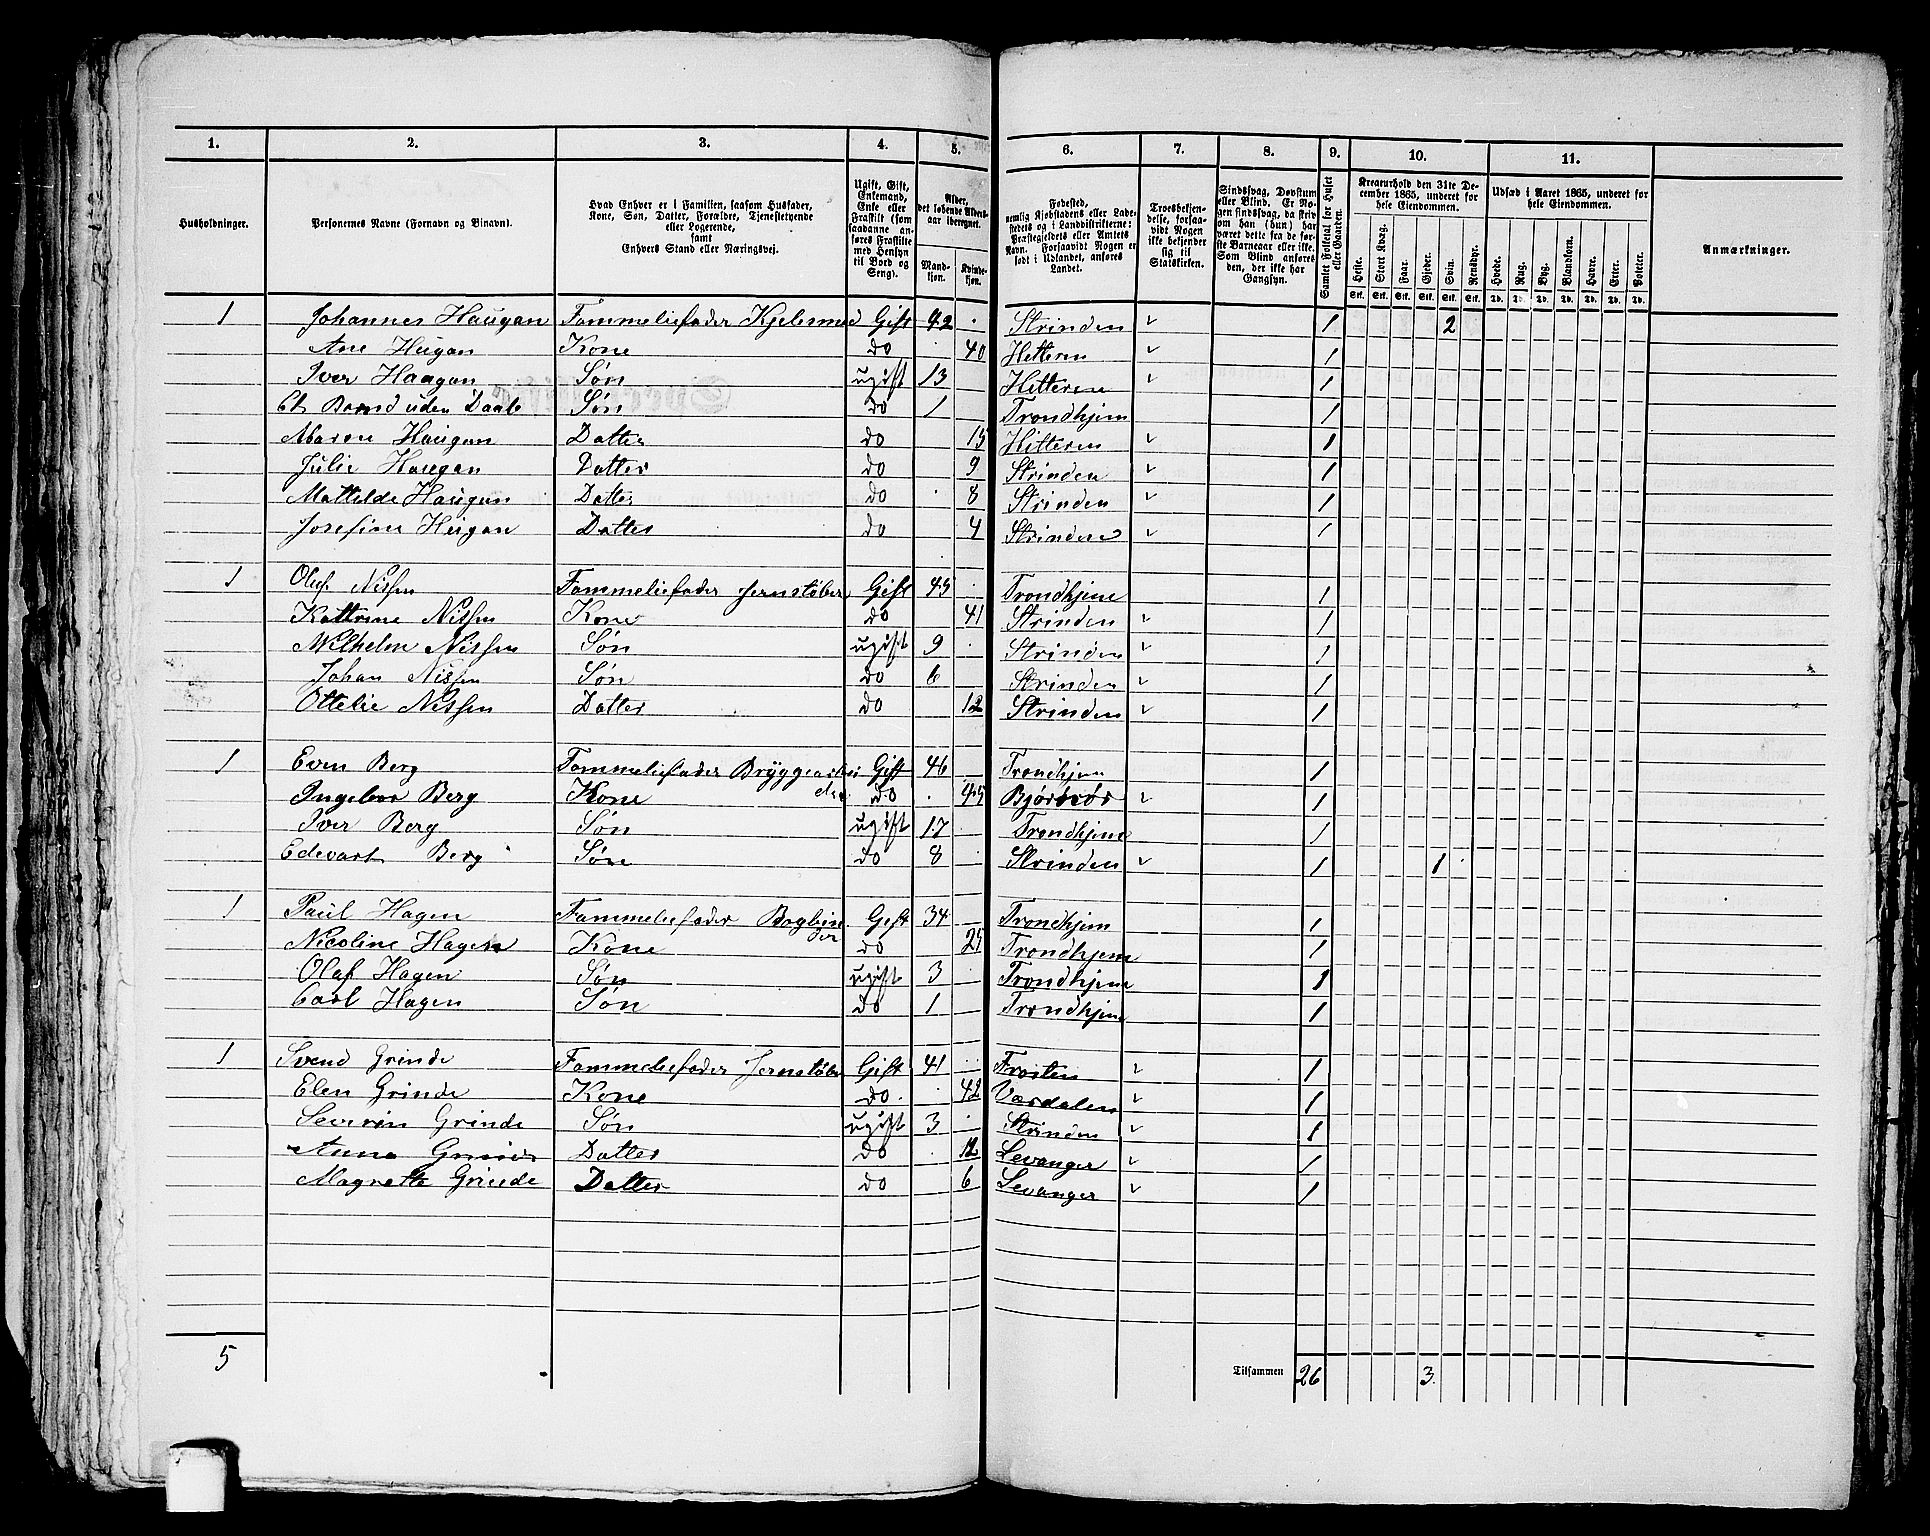 1. 2. 3. 4. 5. 6. 7. 8. 9. 10. 11.
Husholdninger.
Personernes Navne (Fornavn og Binavn).
Hvad Enhver er i Familien, saasom Husfader,
Kone, Søn, Datter, Forældre, Tjenestetyende
eller Logerende,
samt
Enhvers Stand eller Næringsvej.
Ugift, Gift,
Enkemand,
Enke eller
Fraskilt (som
saadanne an-
føres Fraskilte
med Hensyn
til Bord og
Seng).
Alder,
det løbende Alders-
aar iberegnet.
Mand-
kjøn.
Kvinde-
kjøn.
Fødested,
nemlig Kjøbstadens eller Lade-
stedets og i Landdistrikterne:
Præstegjeldets eller Amtets
Navn. Forsaavidt Nogen er
født i Udlandet, anføres
Landet.
Troesbekjen-
delse, forsaa-
vidt Nogen
ikke bekjender
sig til
Statskirken.
Sindssvag, Døvstum
eller Blind. Er No-
gen sindssvag, da skriv
om han (hun) har
været dette fra de før-
ste Barneaar eller ikke.
Som Blind anføres
den, der ikke har
Gangsyn.
Samlet Folketal for Huset
eller Gaarden.
Kreaturhold den 31te De-
cember 1865, underet for
hele Eiendommen.
Heste. Stort Kvæg. Faar. Gjeder. Svin. Rensdyr.
Stk. Stk. Stk. Stk. Stk. Stk.
Udsæd i Aaret 1865, underet for
hele Eiendommen.
Hvede. Rug. Byg. Blandkorn. Havre. Erter. Poteter.
Td. Td. Td. Td. Td. Td. Td.
Anmærkninger.
1 Johannes Haugan Fammeliefader Kjelesmed Gift 42 Strinden 1 2
Ane Haugan Kone do 40 Hitteren 1
Iver Haugan Søn ugift 13 Hitteren 1
Et Barn uden Daab Søn do 1 Trondhjem 1
Maren Haugan Datter do 15 Hitteren 1
Julie Haugan Datter do 9 Strinden 1
Mathilde Haugan Datter do 8 Strinden 1
Josefine Haugan Datter do 4 Strinden 1
1 Oluf Nissen Fammeliefader Jernstøber Gift 45 Trondhjem 1
Kattrine Nissen Kone do 41 Strinden 1
Wilhelm Nissen Søn ugift 9 Strinden 1
Johan Nissen Søn do 6 Strinden 1
Ottelie Nissen Datter do 12 Strinden 1
1 Even Berg Fammeliefader Bryggearbei Gift 46 Trondhjem 1
Ingebor Berg Kone do 45 1
Iver Berg Søn ugift 17 Trondhjem 1
Edevart Berg Søn do 8 Strinden 1 1
1 Paul Hagen Fammeliefader Bogbin Gift 34 Trondhjem 1
der
Nicoline Hagen Kone do 25 Trondhjem 1
Olaf Hagen Søn ugift 3 Trondhjem 1
Carl Hagen Søn do 1 Trondhjem 1
1 Svend Grinde Fammeliefader Jernstøber Gift 41 Frosten 1
Elen Grinde Kone do 42 Værdalen 1
Severin Grinde Søn ugift 3 Strinden 1
Anna Grinde Datter do 12 Levanger 1
Magnette Grinde Datter do 6 Levanger 1
5 Tilsammen 26 3